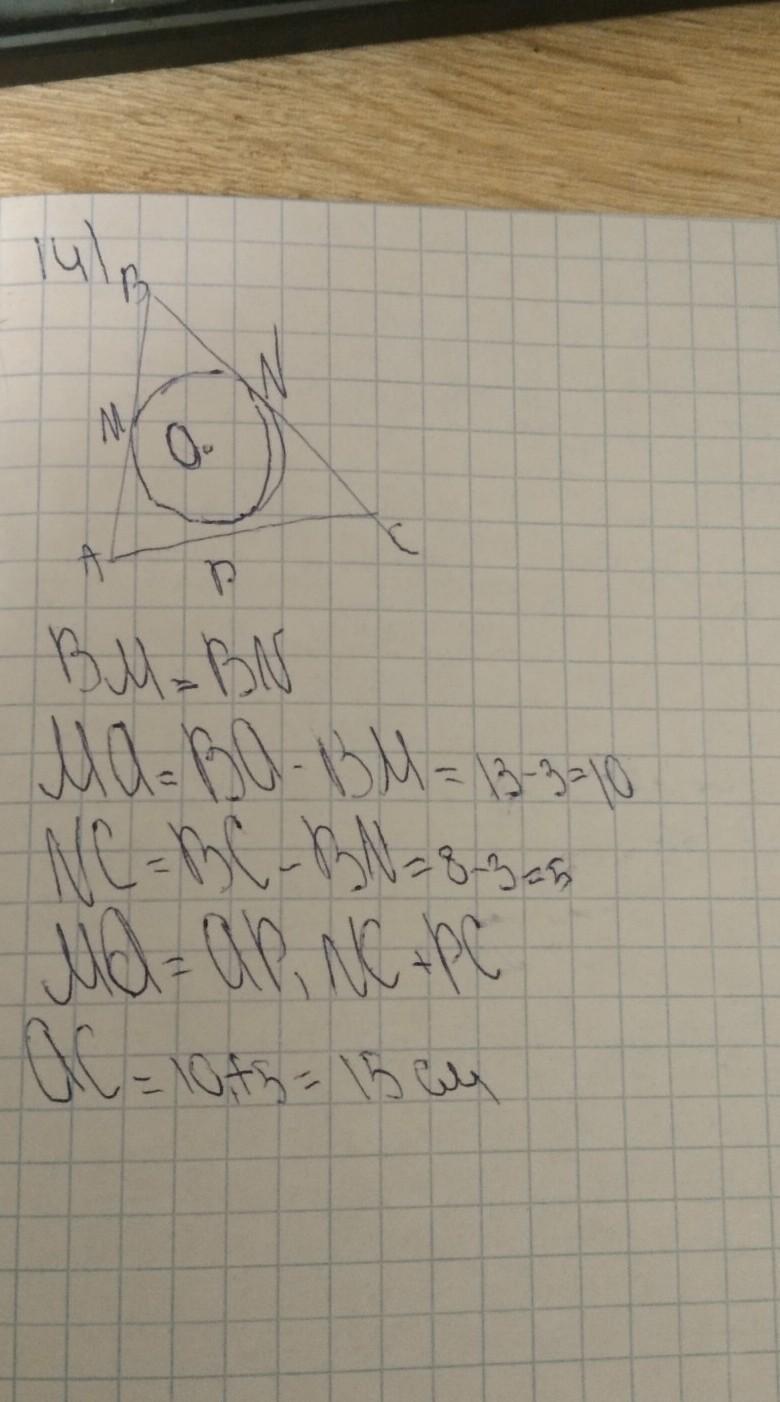 14)
B
N
M
O
A
P
C
BM = BN
MA = BA - BM = 13-3=10
NC = BC - BN = 8-3=5
MA = AP, NC + PC
AC = 10+5 = 15 см